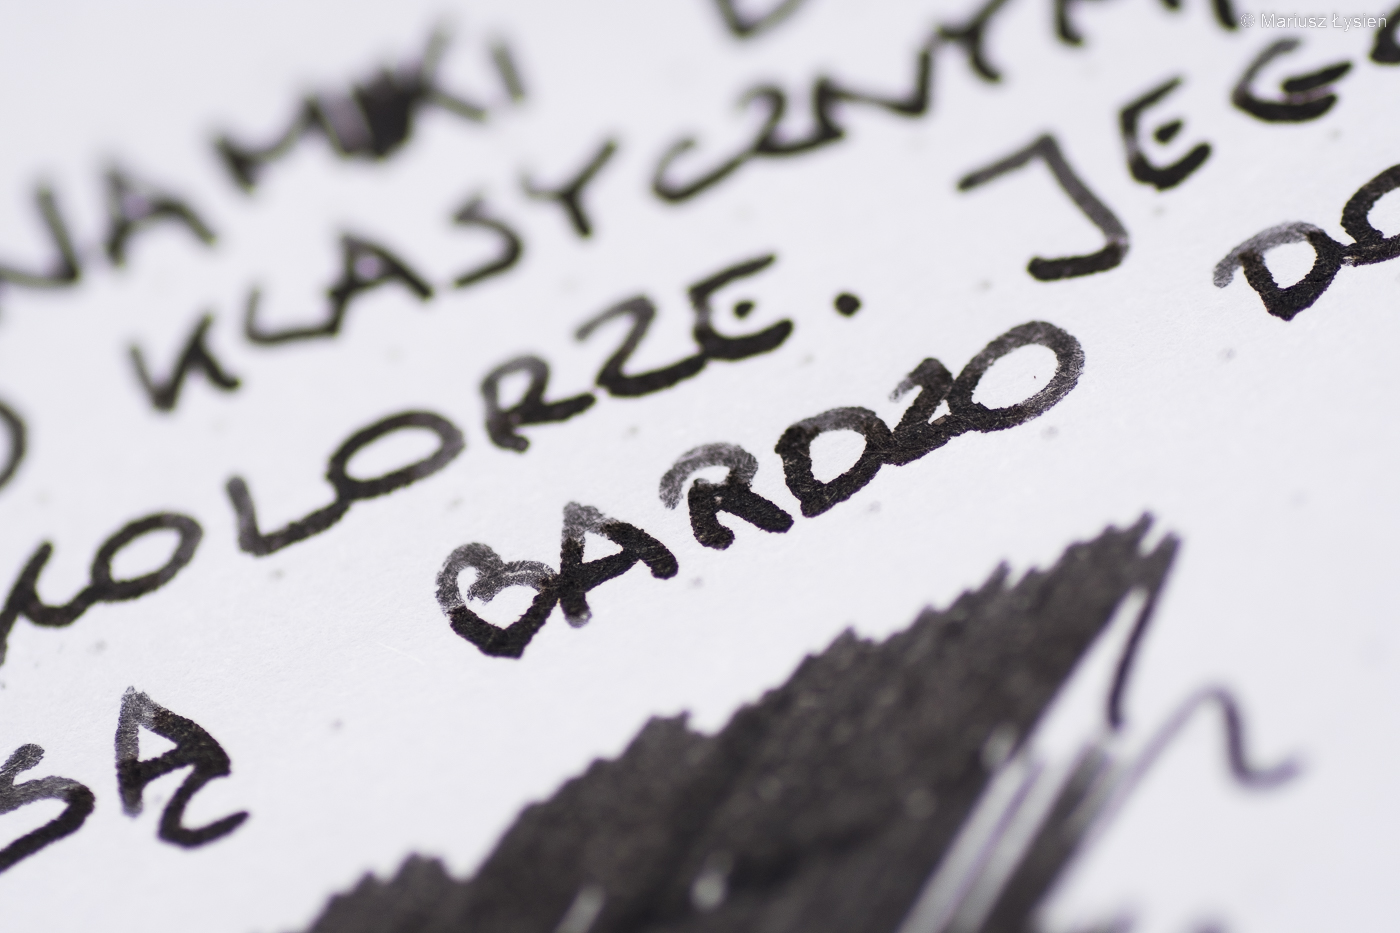 © Mariusz Łysień
KLASYCZNYM
KOLORZE. JEGO
SĄ BARDZO DO